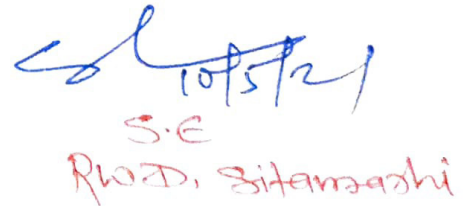 10/5/21
S.E
RWD, Sitamarhi